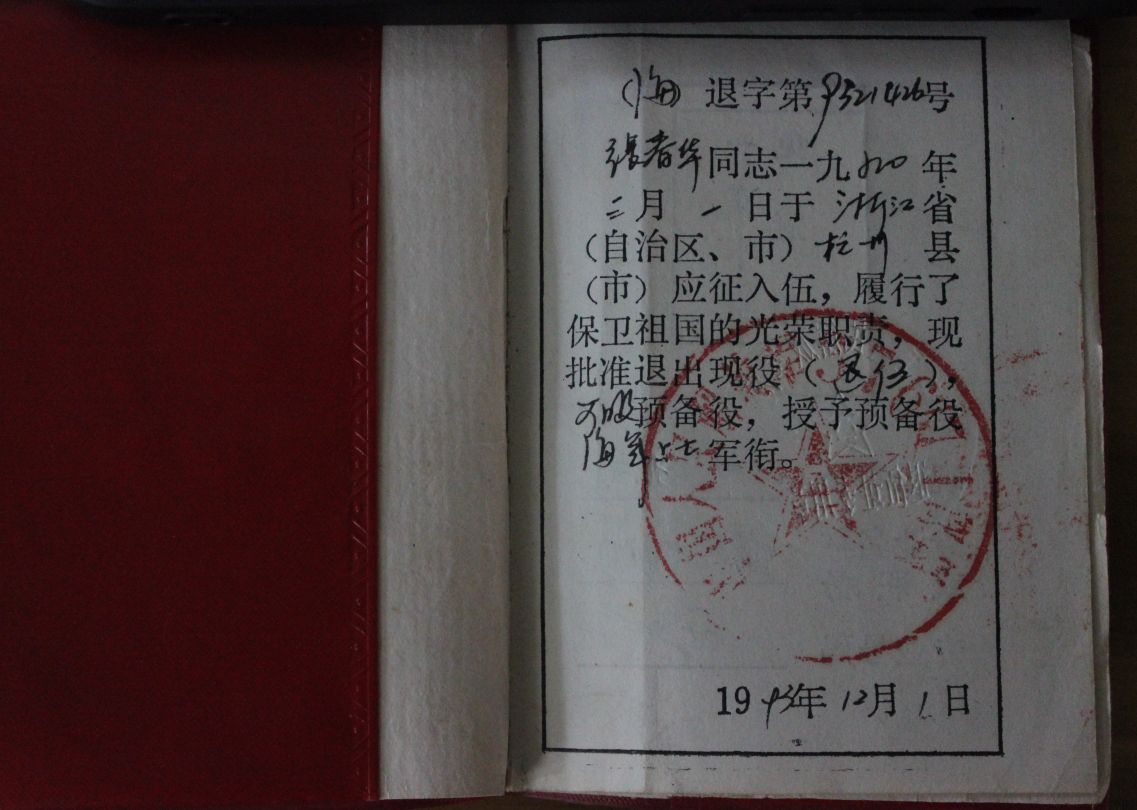 （海）退字第9521426号
張春华同志一九九〇年
三月一日于浙江省
（自治区、市）杭州县
（市）应征入伍，履行了
保卫祖国的光荣职责，现
批准退出现役（退伍），
可服预备役，授予预备役
海军上士军衔。
1993年12月1日